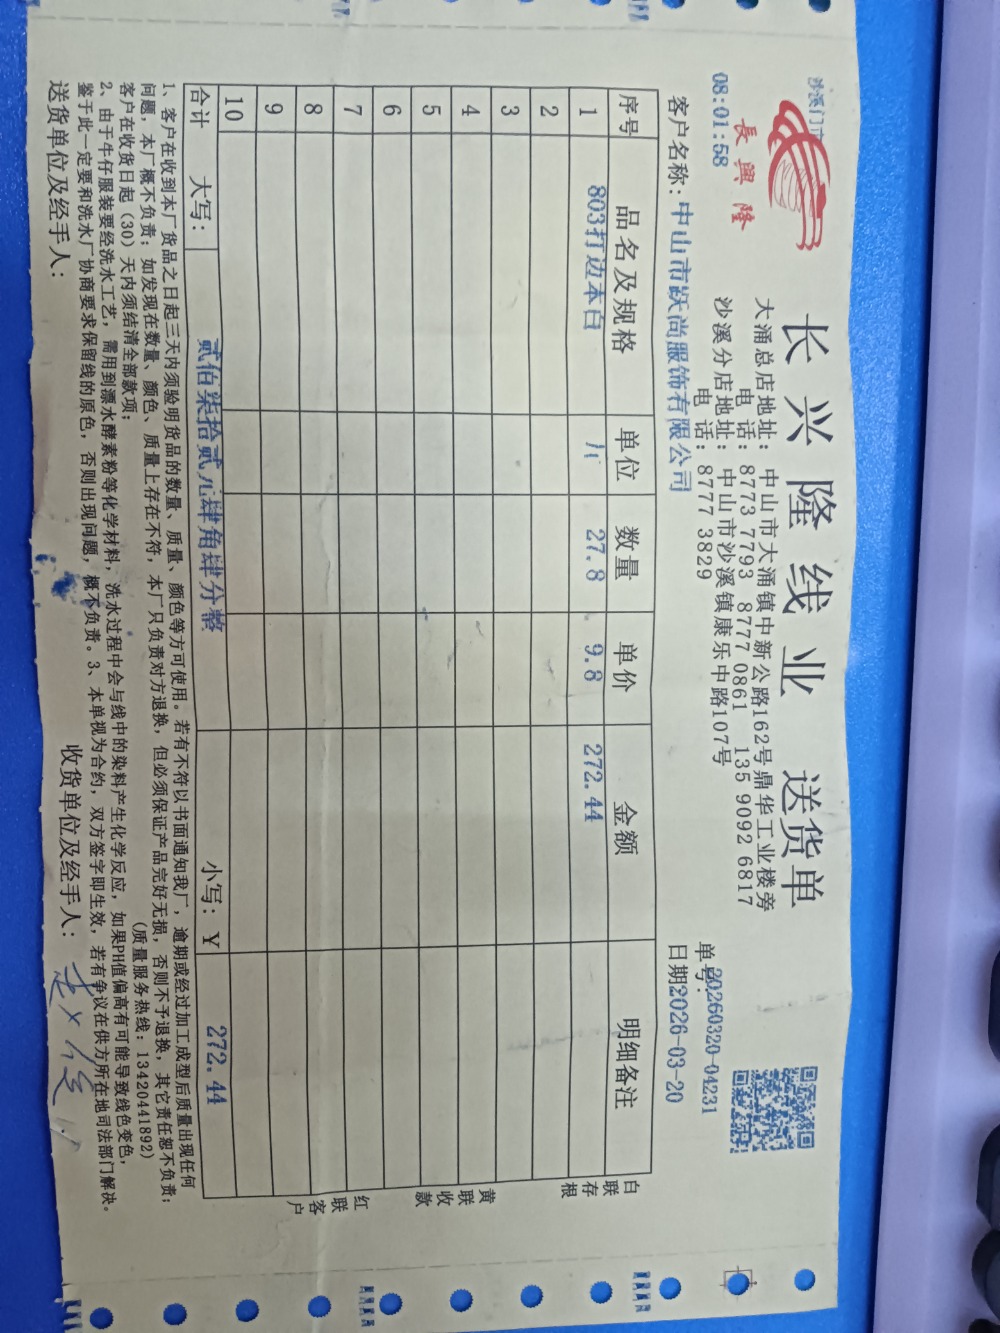 沙溪门市
長興隆
08:01:58
长兴隆线业 送货单
大涌总店地址：中山市大涌镇中新公路162号鼎华工业楼旁
电 话：8773 7793 8777 0861 135 9092 6817
沙溪分店地址：中山市沙溪镇康乐中路107号
电 话：8777 3829
单号：20260320-04231
客户名称：中山市跃尚服饰有限公司 日期2026-03-20
序号 品名及规格 单位 数量 单价 金额 明细备注
1 803打边本白 27.8 9.8 272.44
2
3
4
5
6
7
8
9
10
合计 大写： 贰佰柒拾贰元肆角肆分整 小写：￥ 272.44
白联存根
黄联收款
红联客户
1、客户在收到本厂货品之日起三天内须验明货品的数量、质量、颜色等方可使用。若有不符以书面通知我厂，逾期或经过加工成型后质量出现任何
问题，本厂概不负责；如发现在数量、颜色、质量上存在不符，本厂只负责对方退换，但必须保证产品完好无损，否则不予退换，其它责任恕不负责；
客户在收货日起（30）天内须结清全部款项； （质量服务热线：13420441892）
2、由于牛仔服装要经洗水工艺，需用到漂水酵素粉等化学材料，洗水过程中会与线中的染料产生化学反应，如果PH值偏高有可能导致线色变色，
鉴于此一定要和洗水厂协商要求保留线的原色，否则出现问题，概不负责。3、本单视为合约，双方签字即生效，若有争议在供方所在地司法部门解决。
送货单位及经手人： 收货单位及经手人：